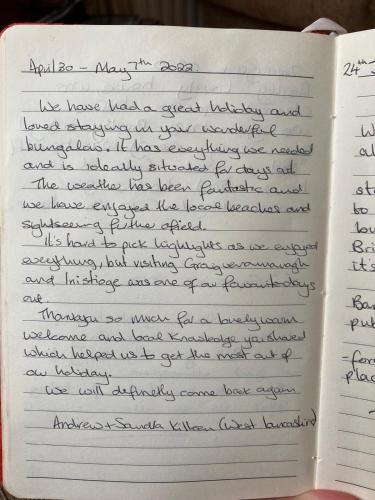 April 30 - May 7th 2022
We have had a great holiday and
loved staying in your wonderful
bungalow. It has everything we needed
and is ideally situated for days out.
The weather has been fantastic and
we have enjoyed the local beaches and
sightseeing further afield.
It's hard to pick highlights as we enjoyed
everything, but visiting Graiguenamanagh
and Inistioge was one of our favourite days
out.
Thankyou so much for a lovely warm
welcome and local knowledge you shared
which helped us to get the most out of
our holiday.
We will definetly come back again
Andrew + Sandra Killeen (West Lancashire)
24th